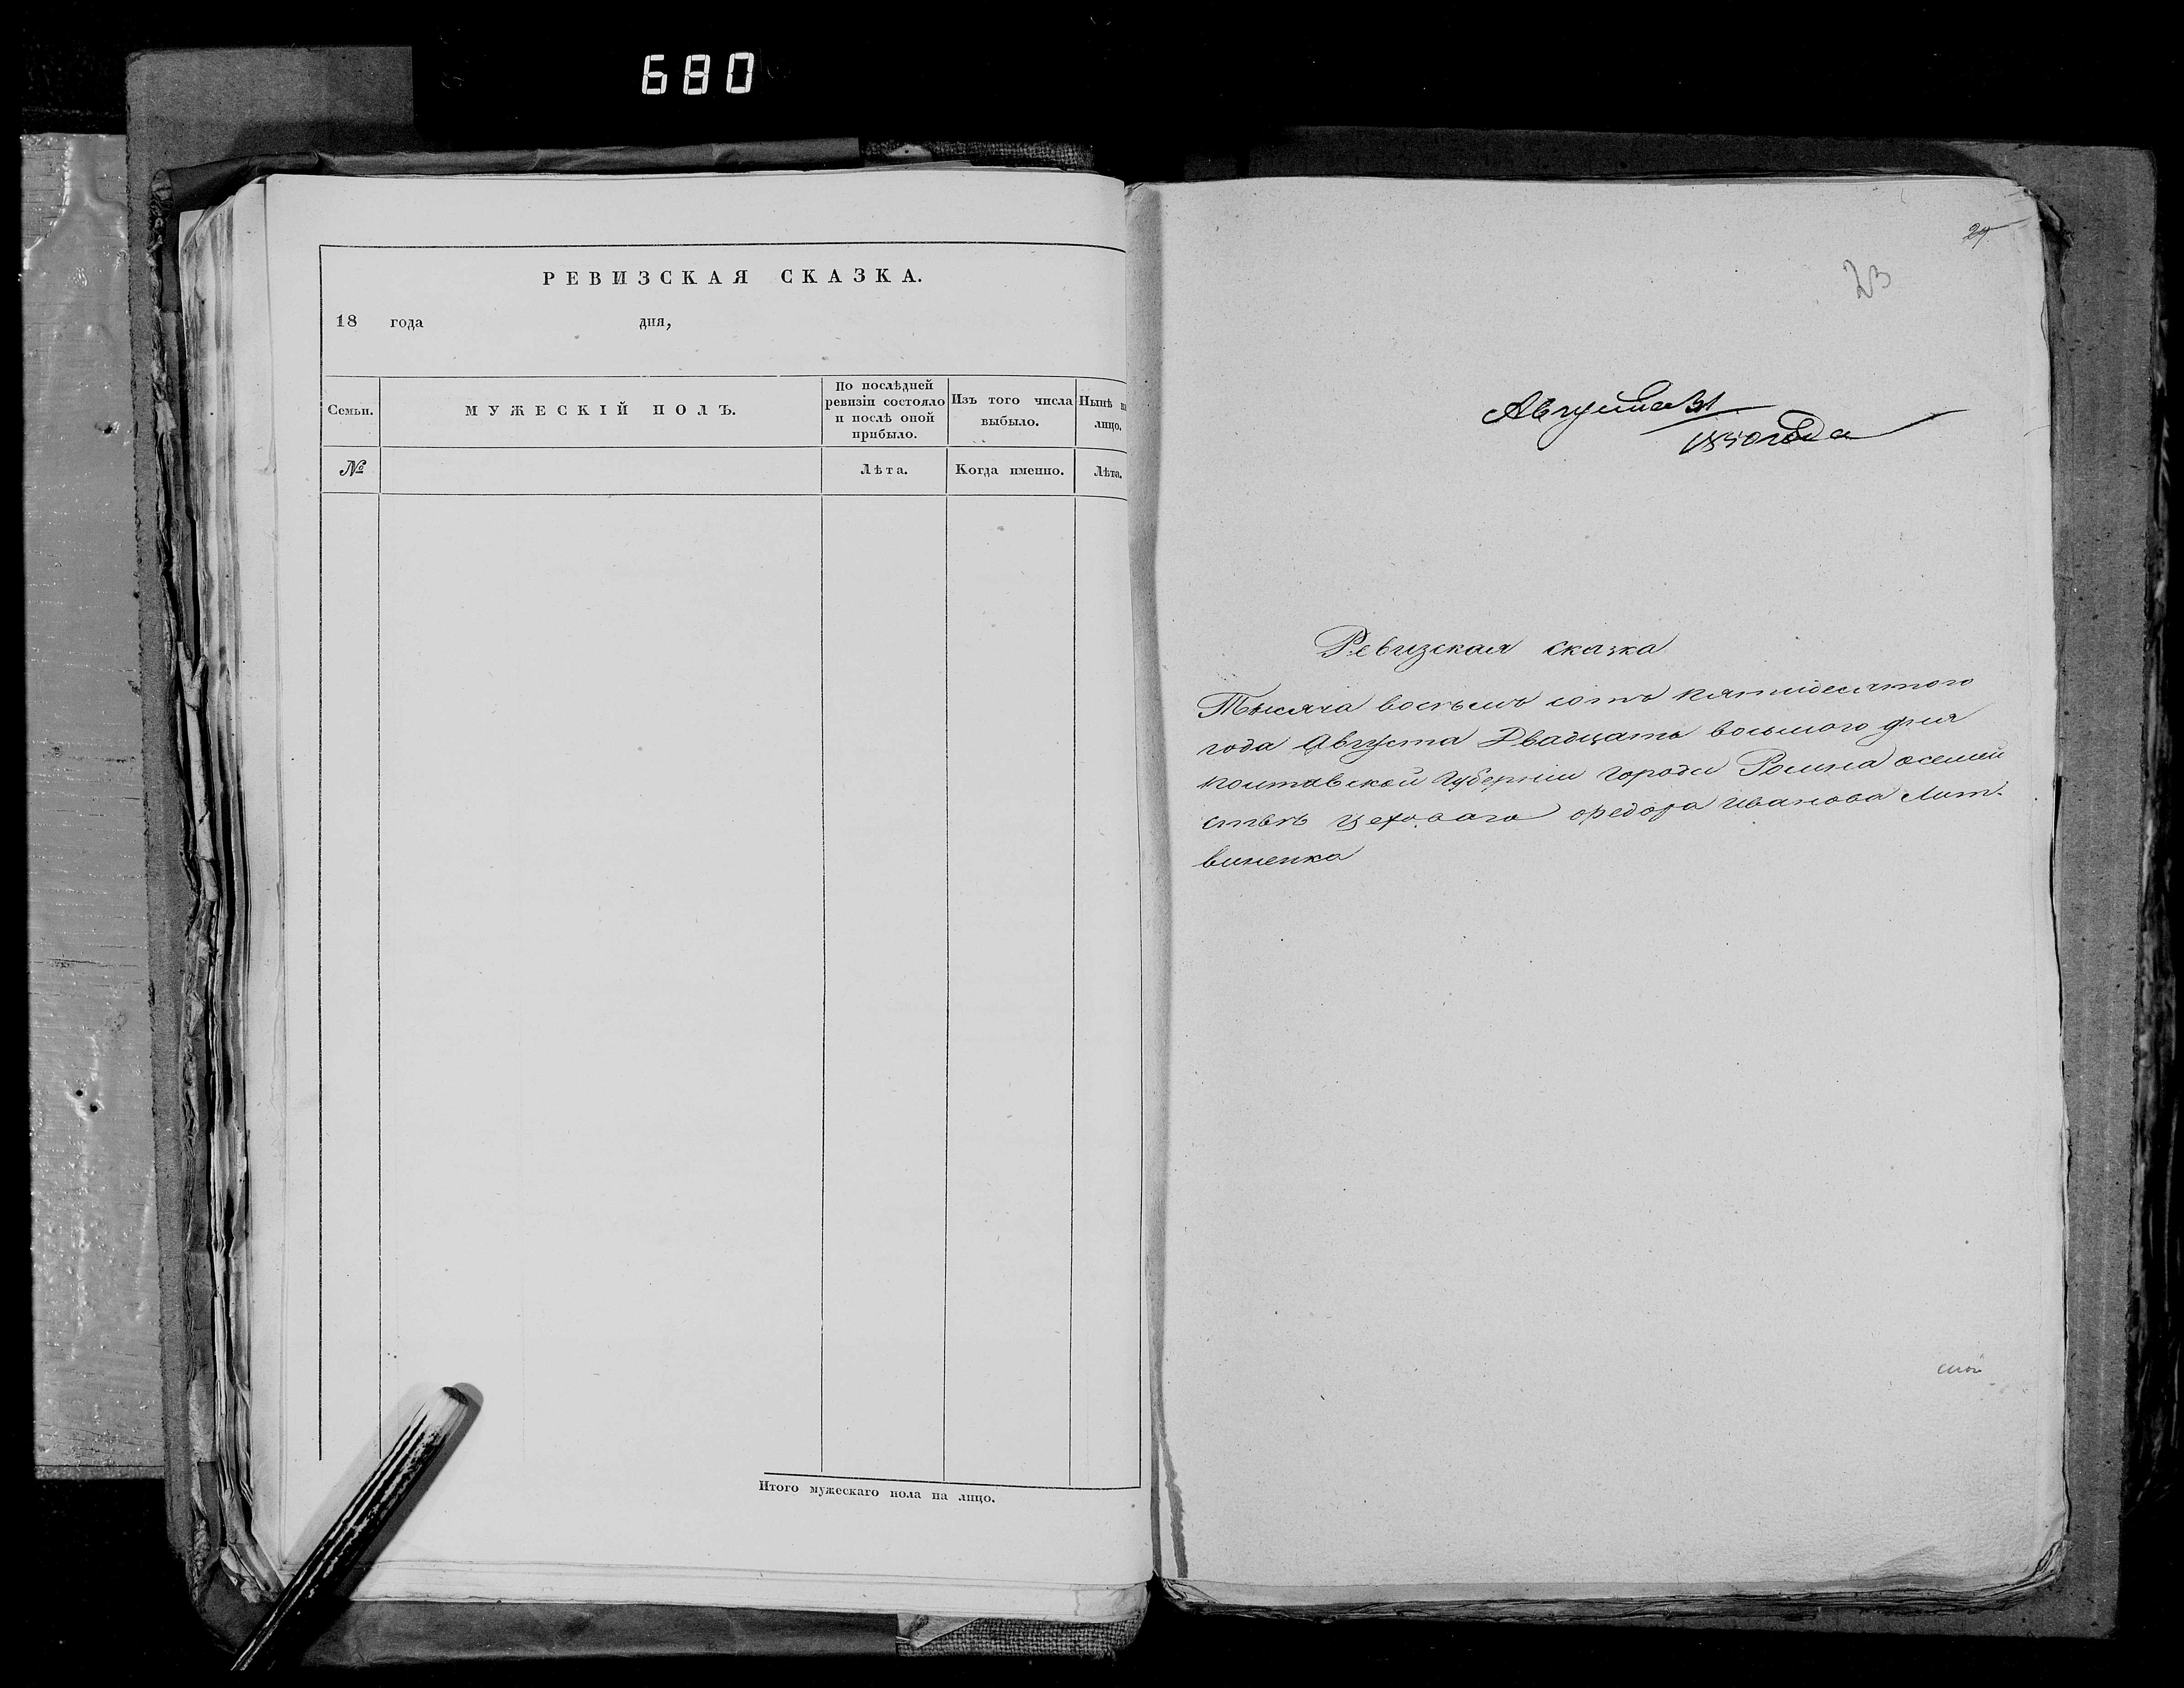 680
РЕВИЗСКАЯ СКАЗКА.
18 года дня,
Семьи.
МУЖЕСКІЙ ПОЛЪ.
По послѣдней
ревизіи состояло
и послѣ оной
прибыло.
Изъ того числа
выбыло.
Нынѣ на
лицо.
№
Лѣта.
Когда именно.
Лѣта.
Итого мужескаго пола на лицо.
23
Августа 31
1850 года
Ревизская сказка
Тысяча восѣмъ сотъ пятидесятого
года Августа Двадцать восьмого дня
полтавской Губерніи города Ромна осемей
ствѣ цеховаго Федора иванова Лит-
виненка